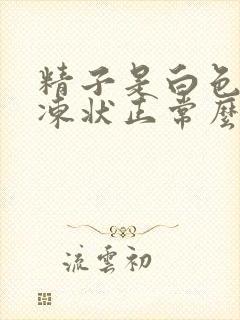 精子是白色
凍狀正常麼
流雲初